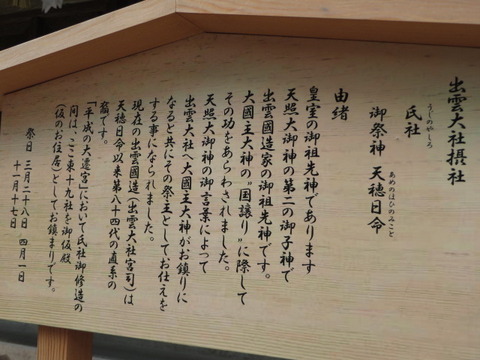 出雲大社摂社
うじのやしろ
氏社
あめのほひのみこと
御祭神 天穂日命
由緒
皇室の御祖先神であります
天照大御神の第二の御子神で
出雲國造家の御祖先神です。
大國主大神の"国譲り"に際して
その功をあらわされました。
天照大御神の御言葉によって
出雲大社へ大國主大神がお鎮りに
なると共にその祭主としてお仕えを
する事になられました。
現在の出雲國造(出雲大社宮司)は
天穂日命以来第八十四代の直系の
裔です。
「平成の大遷宮」において氏社御修造の
間は、ここ東十九社を御仮殿
(仮のお住居)としてお鎮まりです。
祭日 三月二十八日 四月一日
十一月十七日